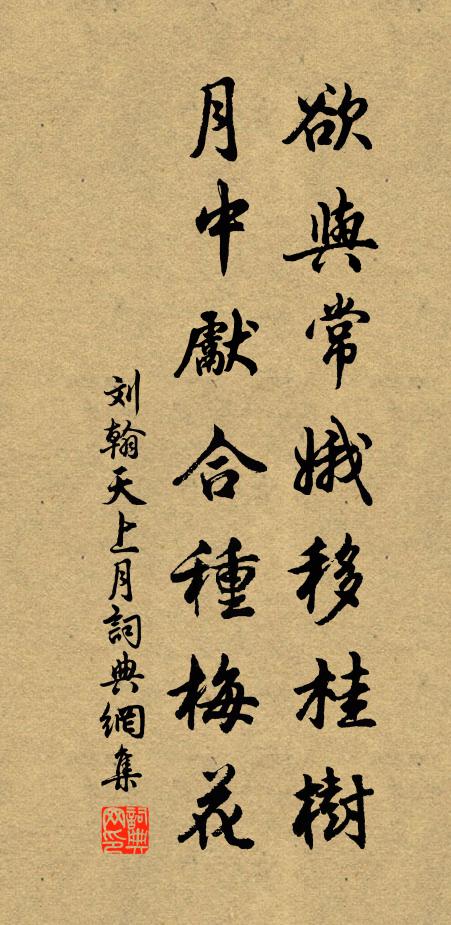 欲與常娥移桂樹
月中獻合種梅花
刘翰天上月詞典網集
詞典网印